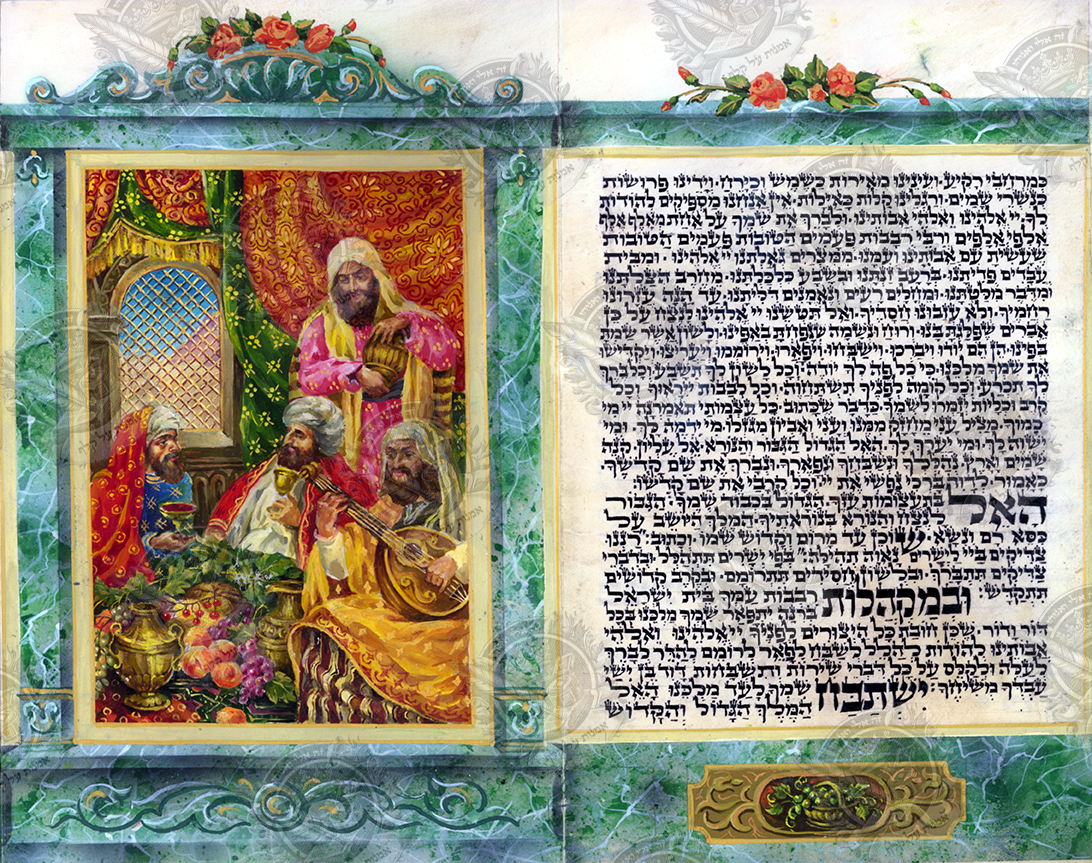 כמרחבי רקיע· ועינינו מאירות כשמש וכירח· וידינו פרושות
כנשרי שמים· ורגלינו קלות כאילות· אין אנחנו מספיקים להודות
לך· יי אלהינו ואלהי אבותינו· ולברך את שמך על אחת מאלף אלף
אלפי אלפים ורבי רבבות פעמים הטובות פעמים הטובות
שעשית עם אבותינו ועמנו· ממצרים גאלתנו יי אלהינו· ומבית
עבדים פדיתנו· ברעב זנתנו ובשבע כלכלתנו· מחרב הצלתנו
ומדבר מלטתנו· ומחלים רעים ונאמנים דליתנו· עד הנה עזרונו
רחמיך· ולא עזבונו חסדיך· ואל תטשנו יי אלהינו לנצח על כן
אברים שפלגת בנו· ורוח ונשמה שנפחת באפינו· ולשון אשר שמת
בפינו· הן הם יודו ויברכו· וישבחו· ויפארו· וירוממו ויעריצו· ויקדישו
את שמך מלכנו· כי כל פה לך יודה· וכל לשון לך תשבע· וכל ברך
לך תכרע· וכל קומה לפניך תשתחוה· וכל לבבות יראוך· וכל
קרב וכליות יזמרו לשמך· כדבר שכתוב· כל עצמותי תאמרנה יי מי
כמוך· מציל עני מחזק ממנו ועני ואביון מגזלו· מי ידמה לך· ומי
ישוה לך· ומי יערך לך· האל הגדול הגבור והנורא· אל עליון קנה
שמים וארץ· נהללך ונשבחך ונפארך· ונברך את שם קדשך·
כאמור· לדוד ברכי נפשי את יי· וכל קרבי את שם קדשו:
האל בתעצומות עזך· הגדול בכבוד שמך· הגבור
לנצח והנורא בנוראתיך· המלך היושב על
כסא רם ונשא: שוכן עד מרום וקדוש שמו· וכתוב· רננו
צדיקים ביי לישרים נאוה תהילה: בפי ישרים תתהלל· ובדברי
צדיקים תתברך· ובלשון חסידים תתרומם· ובקרב קדושים
תתקדש:
ובמקהלות רבבות עמך בית ישראל
ברנה יתפאר שמך מלכנו בכל
דור ודור· שכן חובת כל היצורים לפניך יי אלהינו ואלהי
אבותינו להודות להלל לשבח לפאר לרומם להדר לברך
לעלה ולקלס על כל דברי שירות ותשבחות דוד בן ישי
עבדך משיחך:
ישתבח שמך לעד מלכנו האל
המלך הגדול והקדוש